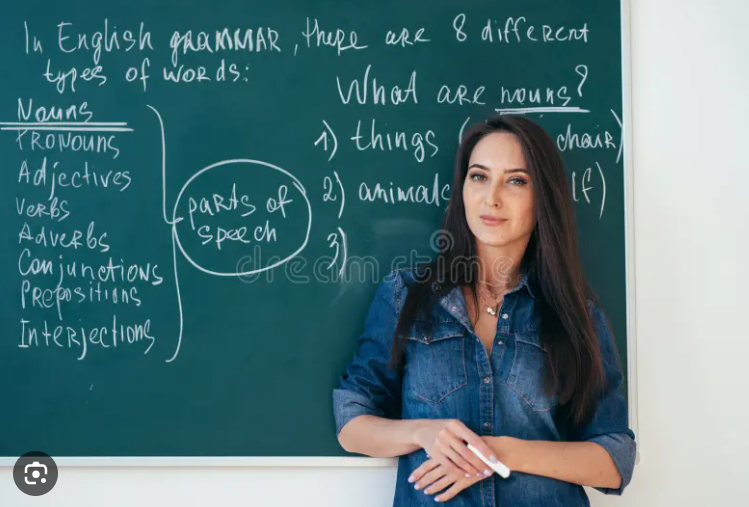 In English grammar, there are 8 different
types of words:
Nouns
Pronouns
Adjectives
Verbs
Adverbs
Conjunctions
Prepositions
Interjections
parts of
speech
What are nouns?
1) things ( chair)
2) animals lf)
3)
dreamstime